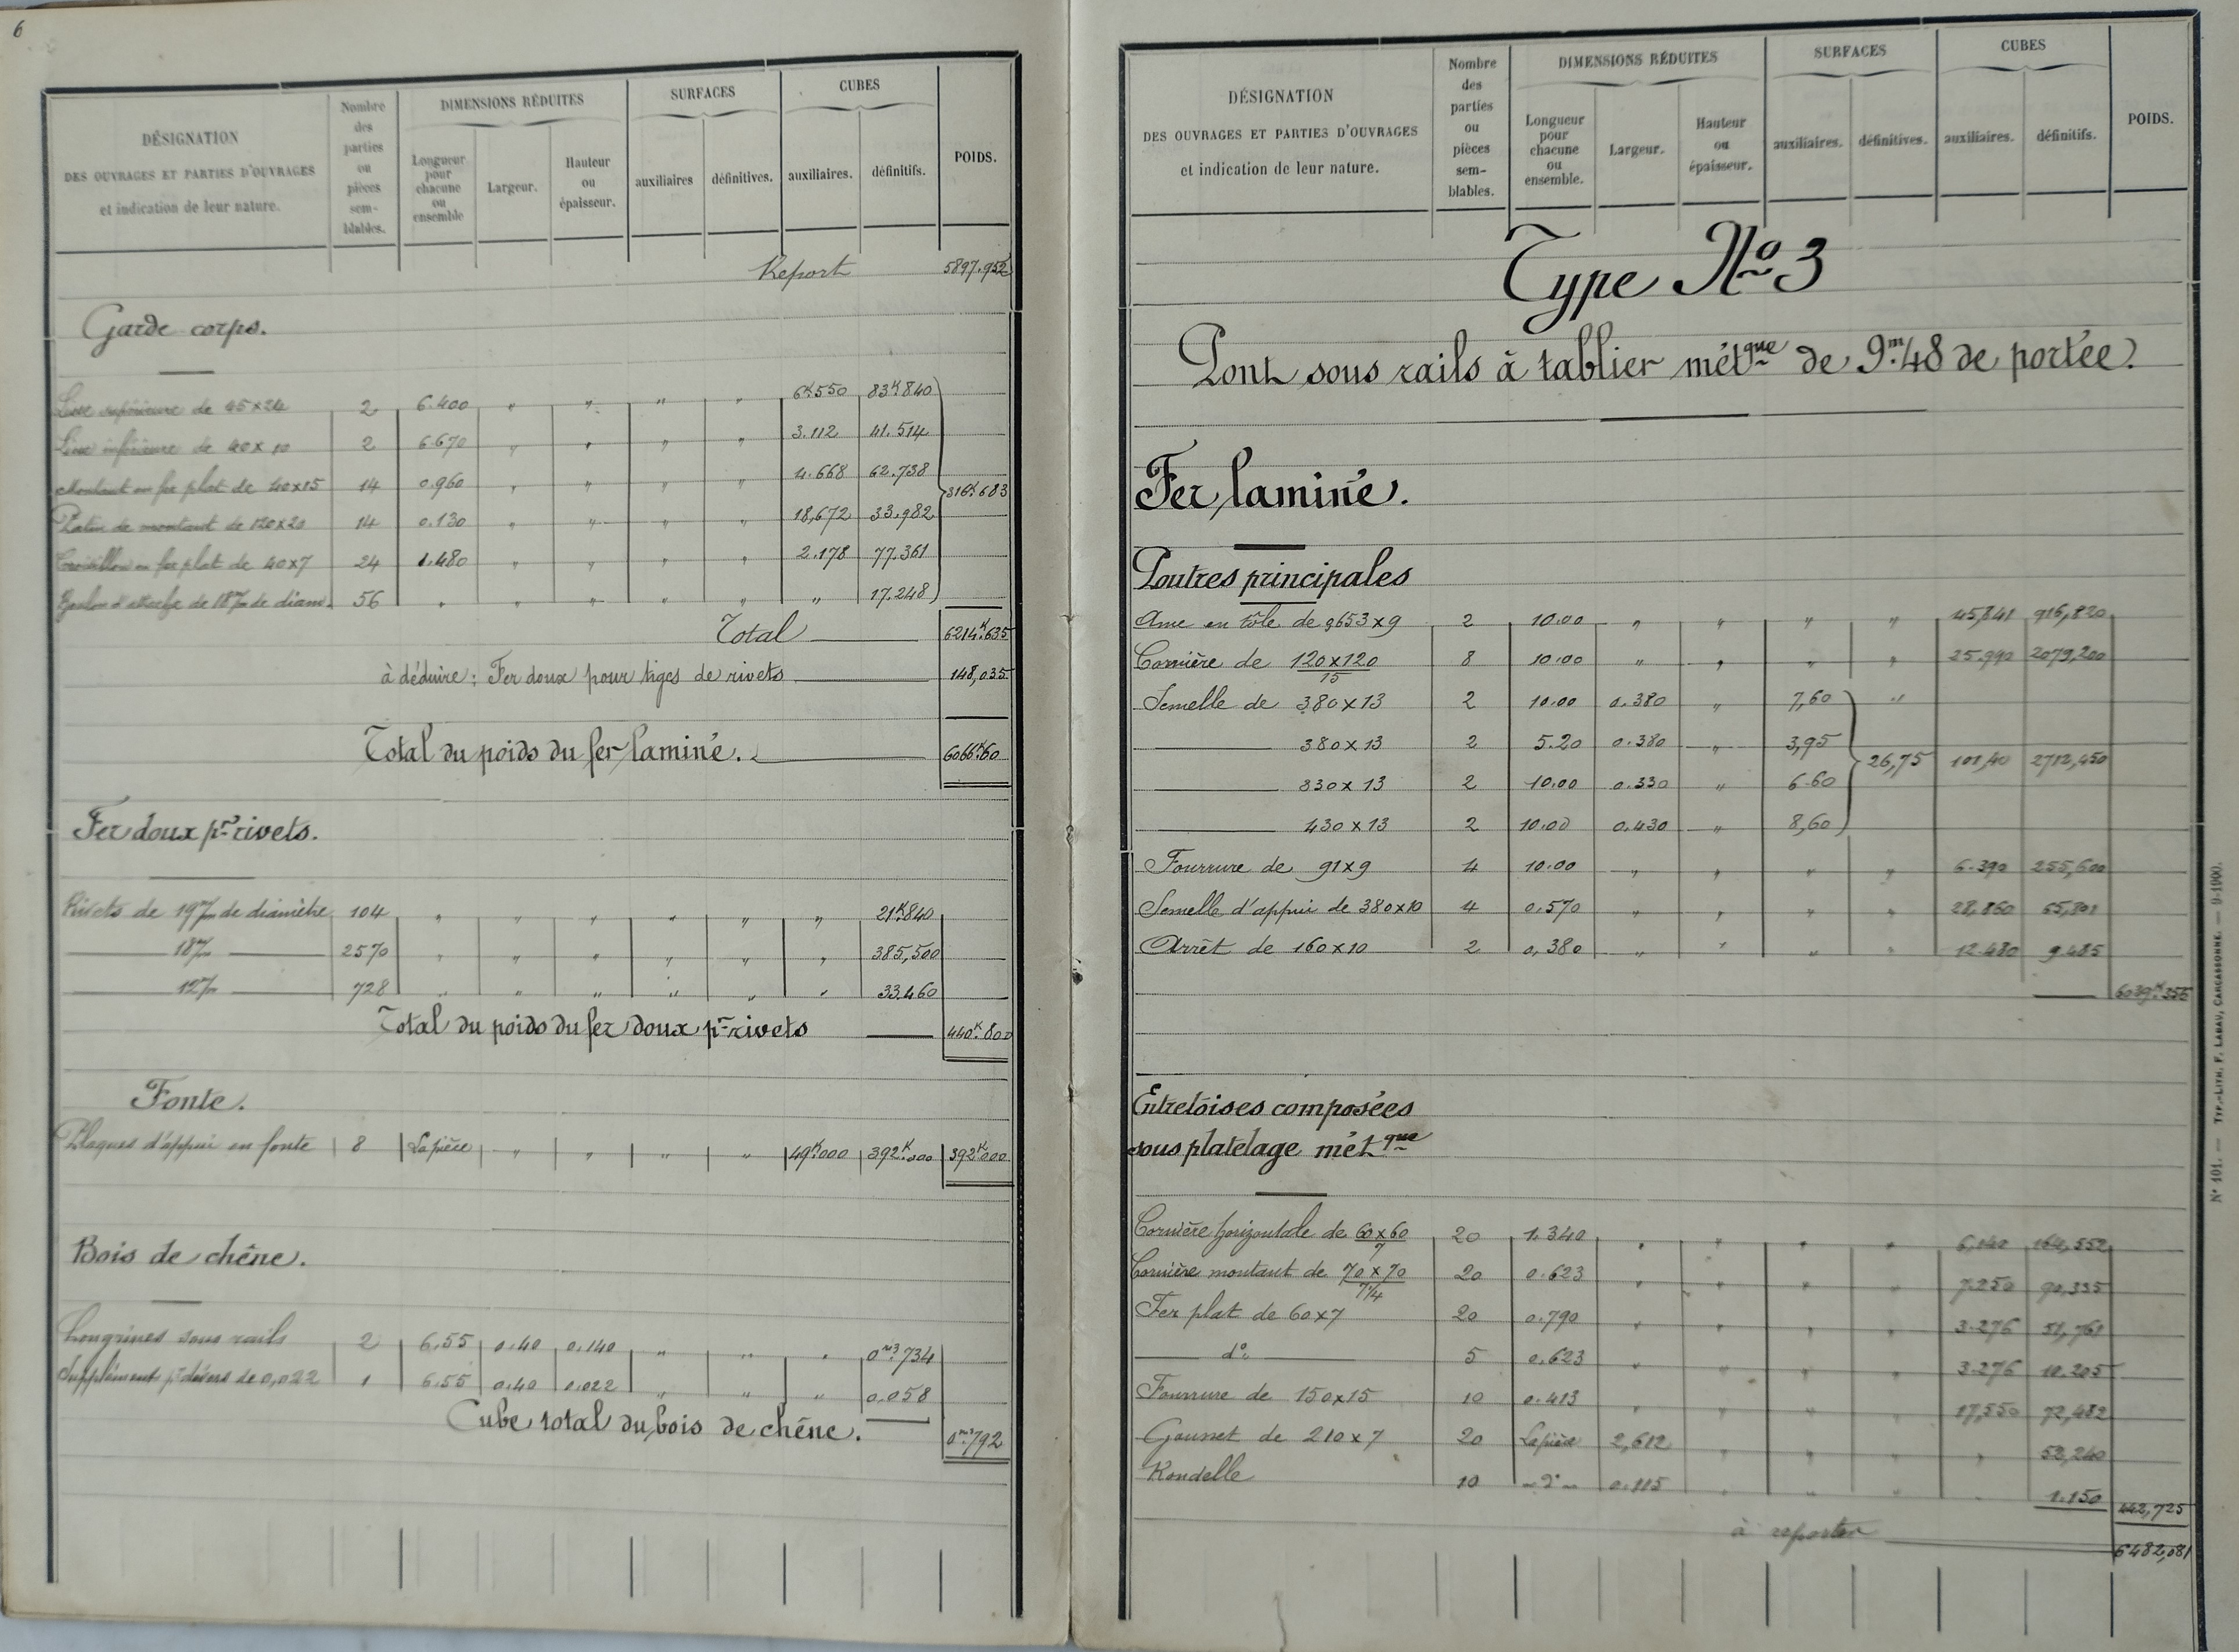 6
DÉSIGNATION
DES OUVRAGES ET PARTIES D'OUVRAGES
et indication de leur nature.
Nombre
des
parties
ou
pièces
sem-
blables.
DIMENSIONS RÉDUITES
Longueur
pour
chacune
ou
ensemble
Largeur.
Hauteur
ou
épaisseur.
SURFACES
auxiliaires
définitives.
CUBES
auxiliaires.
définitifs.
POIDS.
Report 5897.952
Garde corps.
Lisse supérieure de 45x24 2 6.400 " " " " 6K550 83K840
Lisse inférieure de 40x10 2 6.670 " " " " 3.112 41.514
Montant en fer plat de 40x15 14 0.960 " " " " 4.668 62.738
316K683
Patin de montant de 120x20 14 0.130 " " " " 18,672 33.982
Croisillon en fer plat de 40x7 24 1.480 " " " " 2.178 77.361
Boulon d'attache de 18m/m de diam. 56 " " " " " " 17.248
Total 6214K.635
à déduire: Fer doux pour tiges de rivets 148,035
Total du poids du fer laminé. 6066K.60
Fer doux pr rivets.
Rivets de 19m/m de diamètre 104 " " " " " " 21K840
18m/m 2570 " " " " " " 385,500
12m/m 728 " " " " " " 33.460
Total du poids du fer doux pr rivets 440K.800
Fonte.
Plaques d'appui en fonte 8 La pièce " " " " 49K.000 392K.000 392K.000
Bois de chêne.
Longrines sous rails 2 6.55 0.40 0.140 " " " 0m3.734
Suppléments pr dévers de 0,022 1 6.55 0.40 0.022 " " " 0.058
Cube total du bois de chêne. 0m3.792
DÉSIGNATION
DES OUVRAGES ET PARTIES D'OUVRAGES
et indication de leur nature.
Nombre
des
parties
ou
pièces
sem-
blables.
DIMENSIONS RÉDUITES
Longueur
pour
chacune
ou
ensemble.
Largeur.
Hauteur
ou
épaisseur.
SURFACES
auxiliaires.
définitives.
CUBES
auxiliaires.
définitifs.
POIDS.
Type No 3
Pont sous rails à tablier métque de 9m.48 de portée.
Fer laminé.
Poutres principales
Ame en tôle de 0,653x9 2 10.00 " " " " 45,841 916,820
Cornière de 120x120/15 8 10.00 " " " " 25.990 2079,200
Semelle de 380x13 2 10.00 0.380 " 7,60 "
380x13 2 5.20 0.380 " 3,95
26,75 101,40 2712,450
330x13 2 10.00 0.330 " 6.60
430x13 2 10.00 0.430 " 8,60
Fourrure de 91x9 4 10.00 " " " " 6.390 255,600
Semelle d'appui de 380x10 4 0.570 " " " " 28,860 65,801
Arrêt de 160x10 2 0,380 " " " " 12.480 9.485
6039K.356
Entretoises composées
sous platelage métque
Cornière horizontale de 60x60/7 20 1.340 " " " " 6,140 164,552
Cornière montant de 70x70/7¼ 20 0.623 " " " " 7.250 90,335
Fer plat de 60x7 20 0.790 " " " " 3.276 51,761
do. 5 0.623 " " " " 3.276 10.205
Fourrure de 150x15 10 0.413 " " " " 17,550 72,482
Gousset de 210x7 20 La pièce 2,612 " " " " 52,240
Rondelle 10 do 0.115 " " " " 1.150
442,725
à reporter 6482,081
No 101. — TYP.-LITH. F. LABAU, CARCASSONNE. — 9-1900.